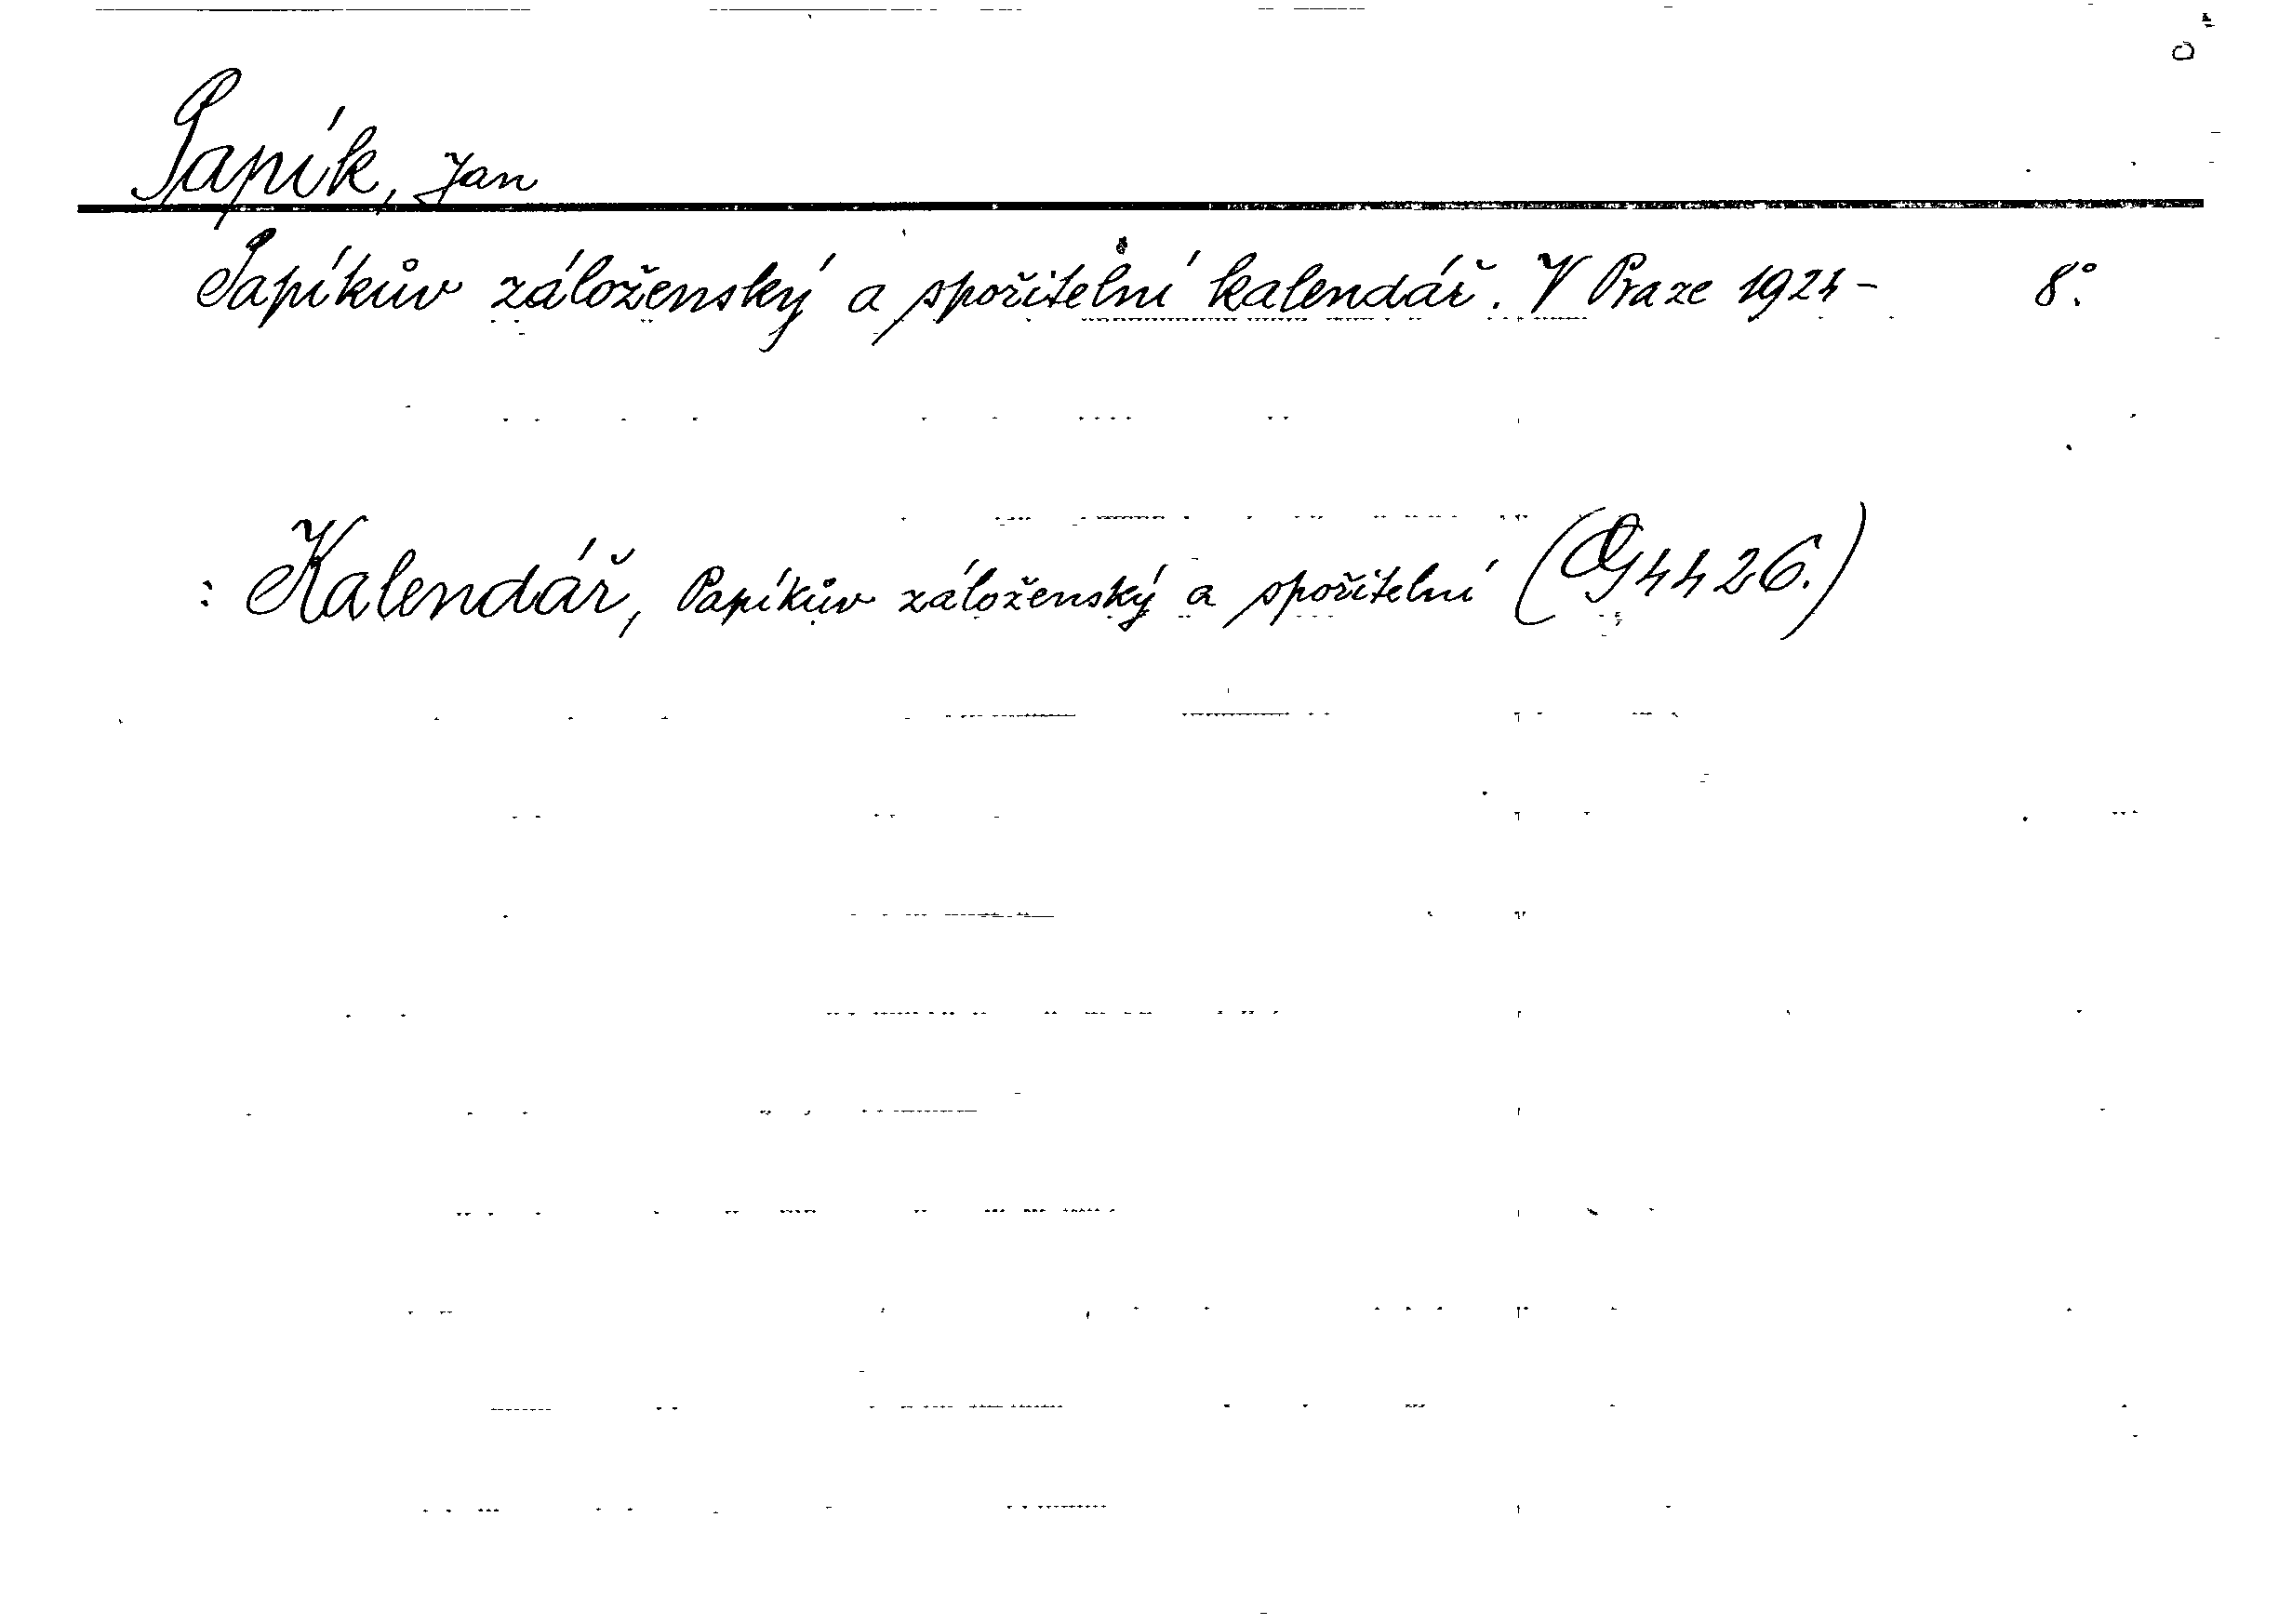 Papík, Jan
Papíkův záloženský a spořitelní kalendář. V Praze 1924 - 8°.
: Kalendář, Papíkův záloženský a spořitelní (G 4426.)